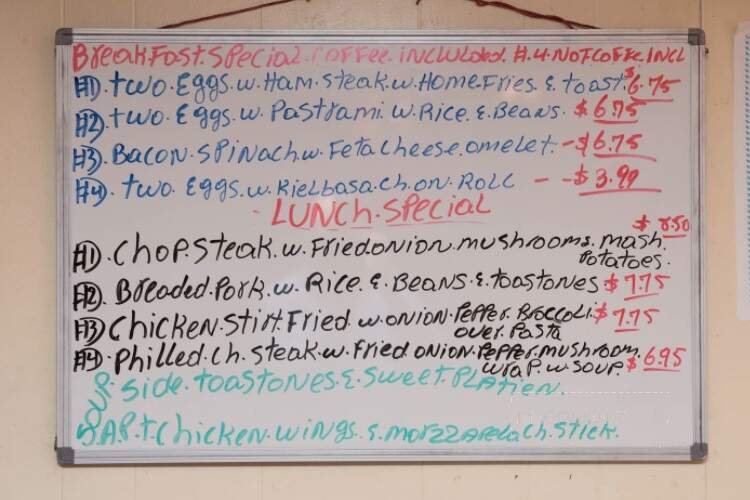 BreakFast.Special.Coffee.included.#.4.NoT Coffe.INCL
#1).two.Eggs.w.Ham.steak.w.Home.Fries.&.toast.$6.75
#2).two.Eggs.w.Pastrami.w.Rice.&.Beans.$6.75
#3).Bacon.Spinach.w.Feta cheese.omelet.-$6.75
#4).two.Eggs.w.Kielbasa.ch.on.Roll - -$3.99
- LUNCh.Special
$8.50
#1).Chop.steak.w.Fried onion.mushrooms.mash.
Potatoes.
#2).Breaded.Pork.w.Rice.&.Beans.&.toastones $7.75
#3)Chicken.Stirt.Fried.w.onion.Pepper.Broccoli.$7.75
over.Pasta
#4).philled.ch.steak.w.Fried.onion.Pepper.mushroom.
wrap.w.soup.$6.95
SOUP side.toastones.&.sweet.PLATien.
A.P.t.Chicken.wings.&.morzzarela.ch.stick.